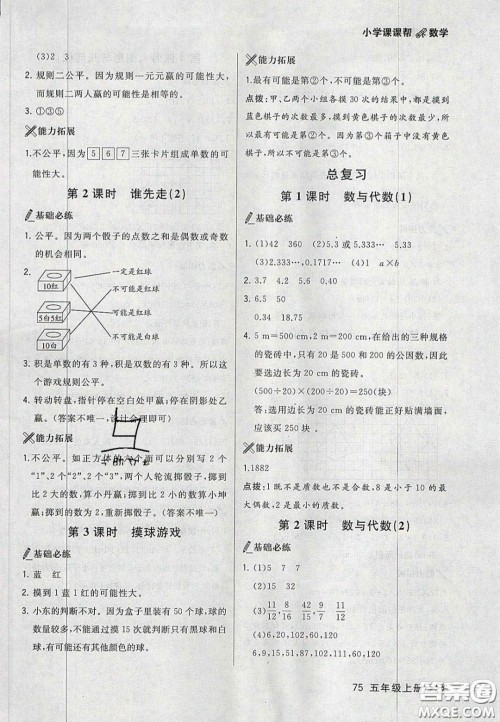 小学课课帮 数学
(3)2 3
2. 规则二公平。因为规则一元元赢的可能性大,
而规则二两人赢的可能性是相等的。
3. ①③⑤
能力拓展
1. 不公平,因为 5 6 7 三张卡片组成单数的可
能性大。
第2课时 谁先走(2)
基础必练
1. 公平。因为两个骰子的点数之和是偶数或奇数
的机会相同。
2.
10红
5白5红
10白
一定是红球
不可能是红球
可能是红球
不可能是白球
3. 积是单数的有3种,积是双数的有3种。所以这
个游戏规则公平。
4. 转动转盘,指针停在空白处甲赢;停在阴影处乙
赢。(答案不唯一,设计合理即可)
能力拓展
1. 不公平。如正方体的六个面可以分别写2个
“1”、2个“2”、2个“3”,两个人轮流掷骰子,掷到
比2大的数,算小丹赢;掷到比2小的数,算小坤
赢;掷到的数为2,重新掷骰子。(答案不唯一)
第3课时 摸球游戏
基础必练
1. 蓝 红
2. 摸到1蓝1红的可能性大。
3. 小东的判断不对。因为盒子里装有50个球,球的
数量较多,不能通过摸15次就判断只有黑球和白
球,有可能还有其他颜色的球。
能力拓展
1. 最有可能是第②个,不可能是第③个。
点拨:甲、乙两个小组各摸30次的结果中,都是摸到
蓝色棋子的次数多,摸到黄色棋子的次数少,且都摸到
了黄色棋子,因为第③个箱子中所没有黄色棋子,因此
不可能是第③个。
总复习
第1课时 数与代数(1)
基础必练
1. (1)42 360 (2)5.333… 5.33
(3)2.333…,0.1717… (4)1 a×b
2. 3.7 4.2 5.6 0.40
3. 6.5 50
0.34 18.75
4. 5 m=500 cm,2 m=200 cm,在给出的三种规
格的瓷砖中,只有20是500和200的公因数,因此
要选边长为20 cm的瓷砖。
(500÷20)×(200÷20)=250(块)
答:选用边长为20 cm的瓷砖能正好贴满墙面,
应该买250块。
能力拓展
1. 1882
点拨:1既不是质数也不是合数,8是小于10的最
大偶数,2是最小的质数。
第2课时 数与代数(2)
基础必练
1. (1)5 7
(2)15 32
2. (1)15 15
(2)15 32
(3)11/12 8/16 42/9 11/12 9/15
(4)120
6,9,15,51,87,102,111,120 6,102,120
75 五年级上册